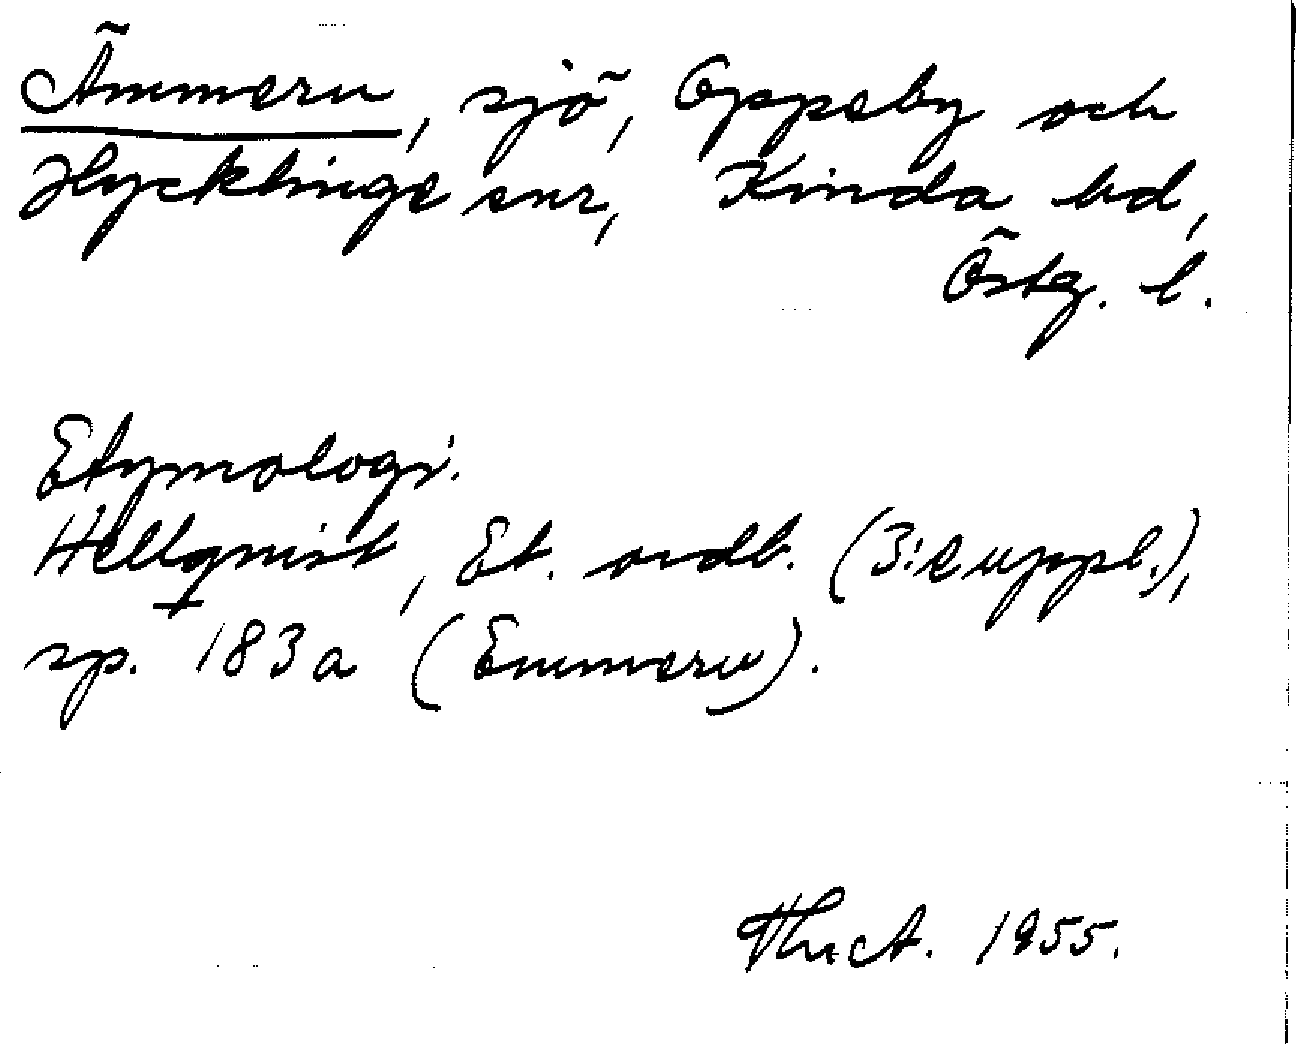 Ämmern, sjö, Oppeby och
Hycklinge snr, Kinda hd,
Östg. l.
Etymologi.
Hellquist, Et. ordb. (3:e uppl.),
sp. 183a (Emmern).
1955.